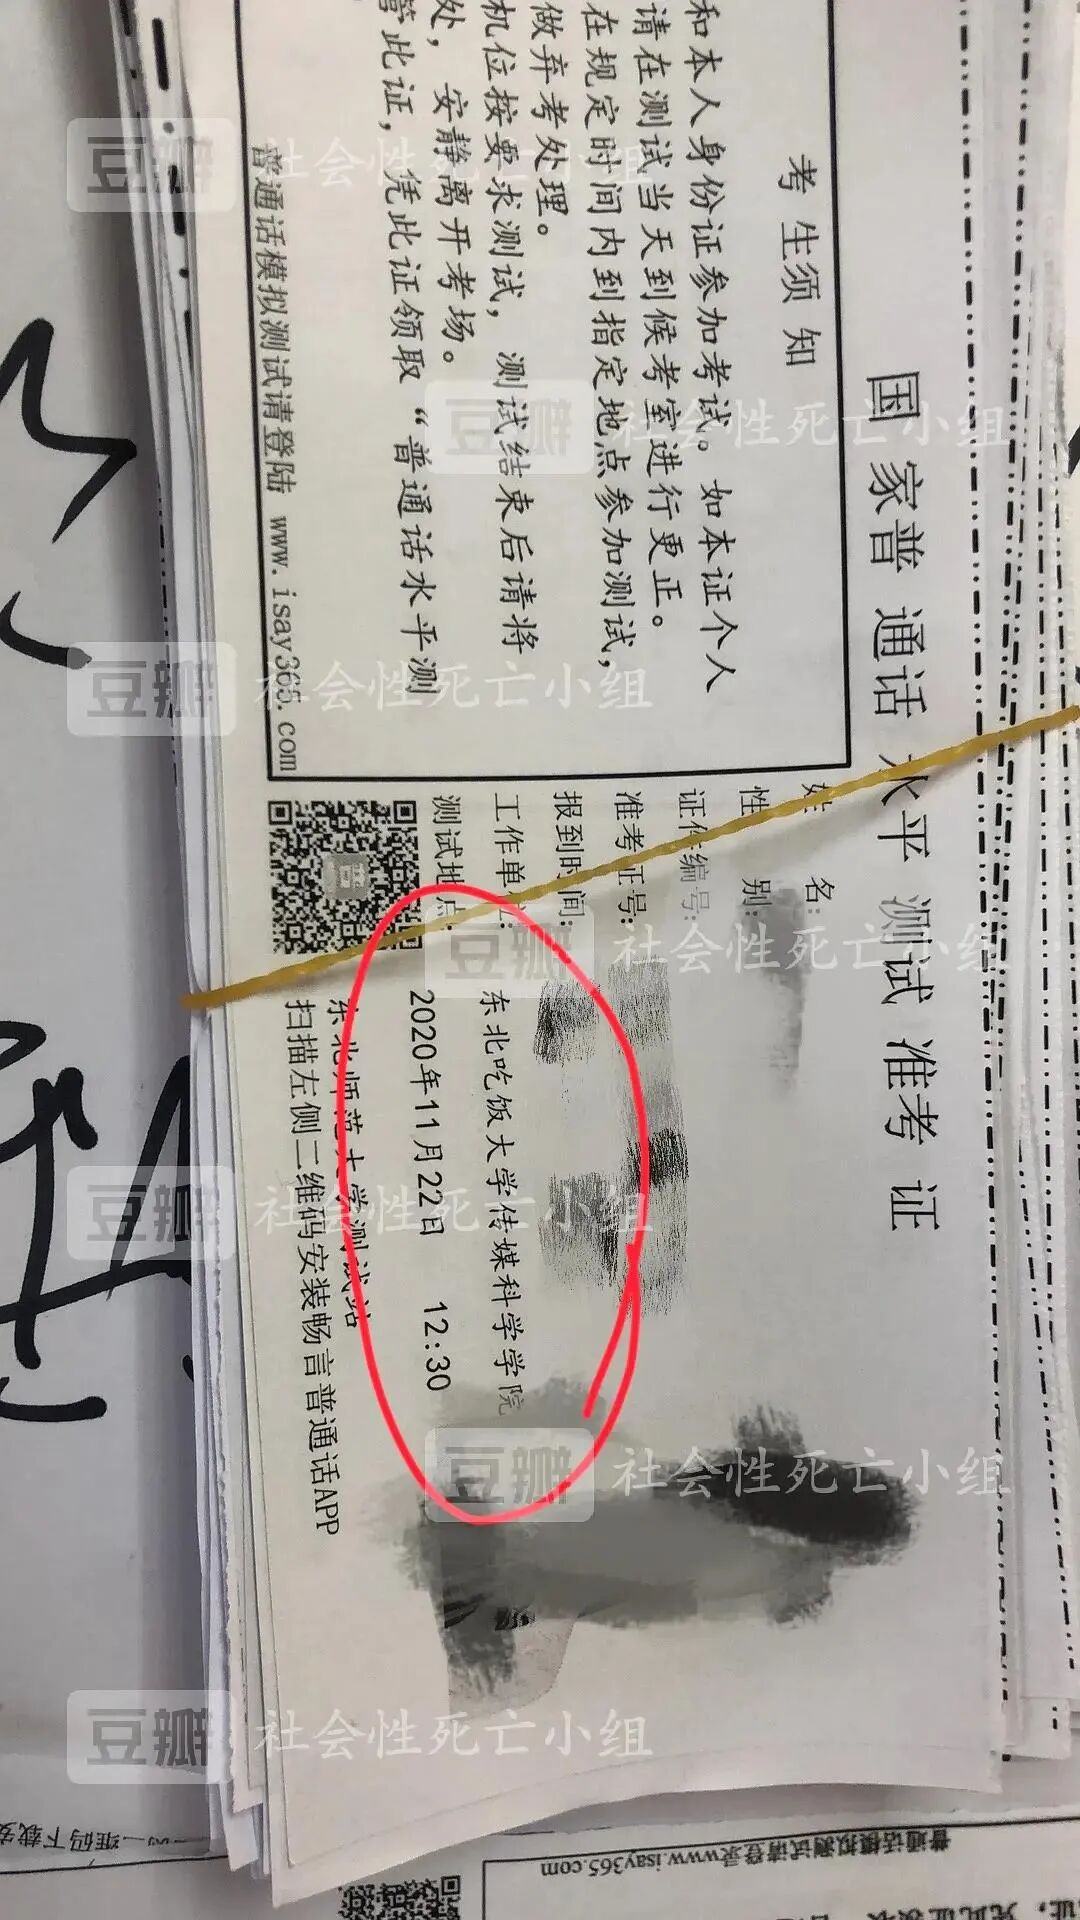 国家普通话水平测试准考证
考生须知
和本人身份证参加考试。如本证个人
请在测试当天到候考室进行更正。
在规定时间内到指定地点参加测试，
做弃考处理。
机位按要求测试，测试结束后请将
处，安静离开考场。
管此证，凭此证领取“普通话水平测
普通话模拟测试请登陆 www.isay365.com
姓名：
性别：
证件编号：
准考证号：
报到时间：
工作单位：
测试地点：
东北吃饭大学传媒科学学院
2020年11月22日 12:30
东北师范大学测试站
扫描左侧二维码安装畅言普通话APP
普通话模拟测试请登录www.isay365.com
豆瓣 社会性死亡小组
豆瓣 社会性死亡小组
豆瓣 社会性死亡小组
豆瓣 社会性死亡小组
豆瓣 社会性死亡小组
豆瓣 社会性死亡小组
豆瓣 社会性死亡小组